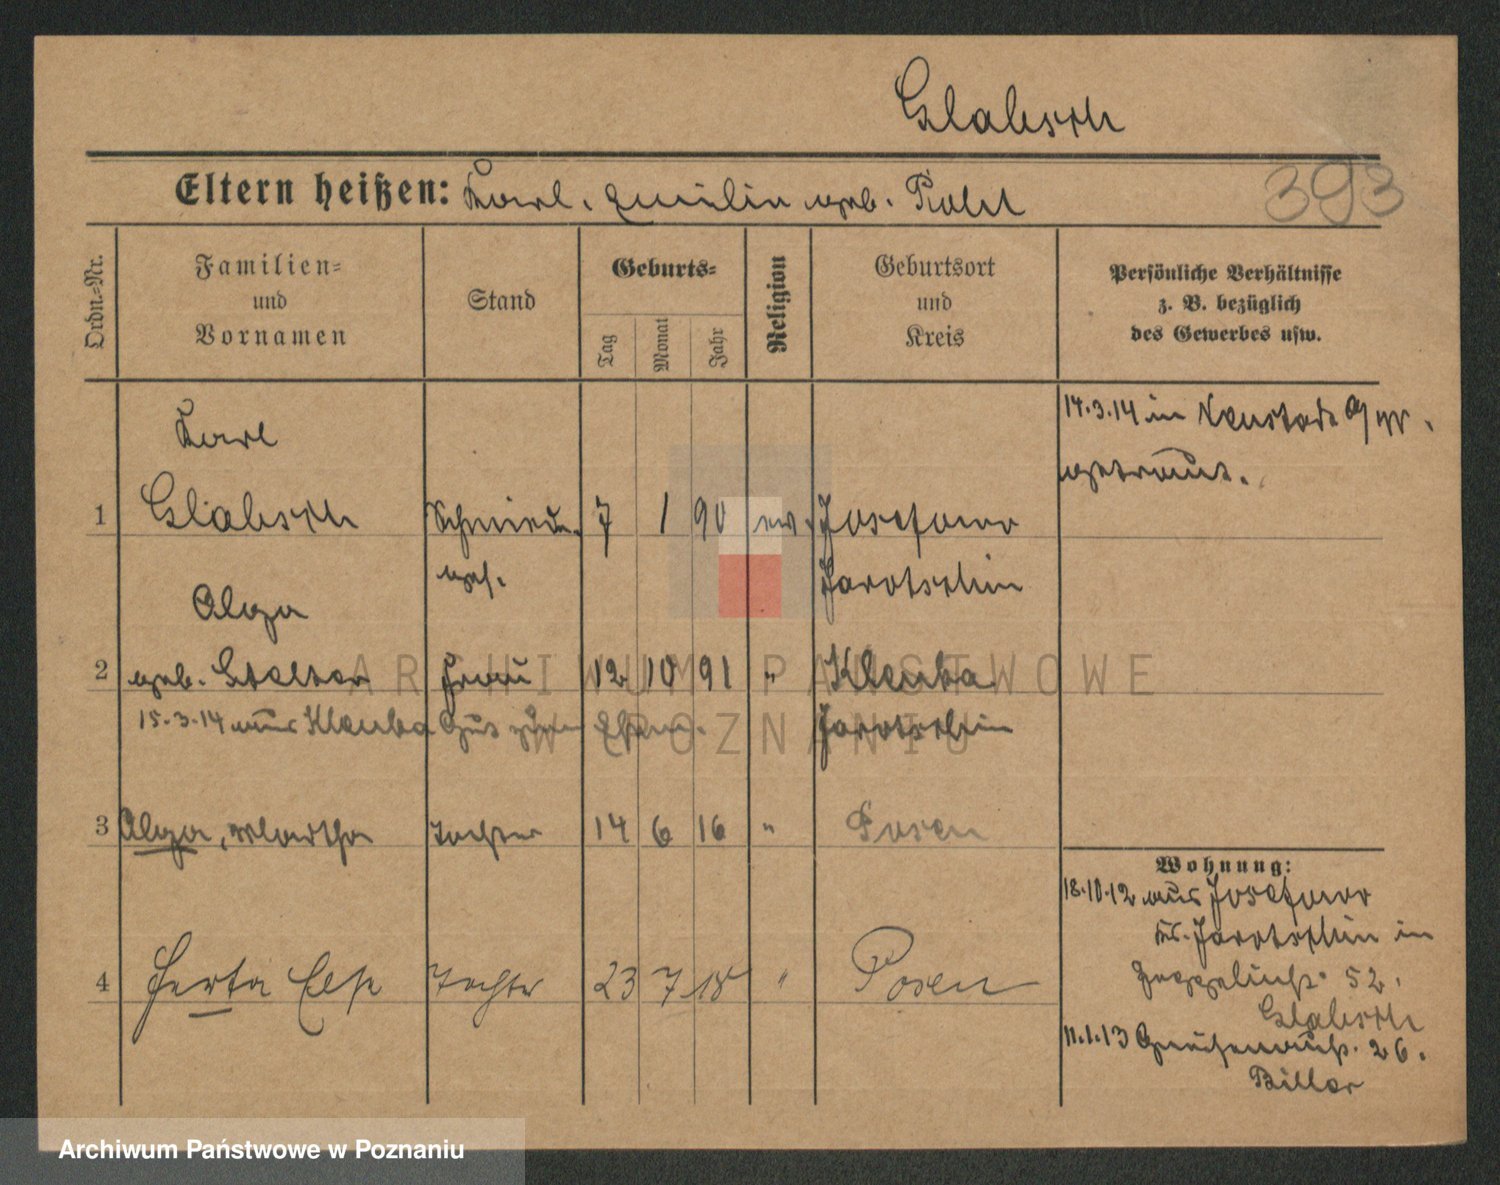 Glabsch
Eltern heißen: Karl. Emilin geb. Pohl
393
Ordn.-Nr.
Familien-
und
Vornamen
Stand
Geburts-
Tag
Monat
Jahr
Religion
Geburtsort
und
Kreis
Persönliche Verhältnisse
z. B. bezüglich
des Gewerbes usw.
Karl
1 Glabsch Schmiede- 7 1 90 ev. Josefowo
ges. Jarotschin
14.3.14 in Neustadt
getraut.
Olga
2 geb. Frau 12 10 91 " Klenka
15.3.14 aus Klenka Jarotschin
3 Olga, Martha Tochter 14 6 16 " Posen
4 Herta Else Tochter 23 7 18 " Posen
Wohnung:
18.10.12 aus Josefowo
Kr. Jarotschin in
Zeppelinstr. 52.
Glabsch
11.1.13 Gneisenaustr. 26.
Biller
ARCHIWUM PAŃSTWOWE
W POZNANIU
Archiwum Państwowe w Poznaniu